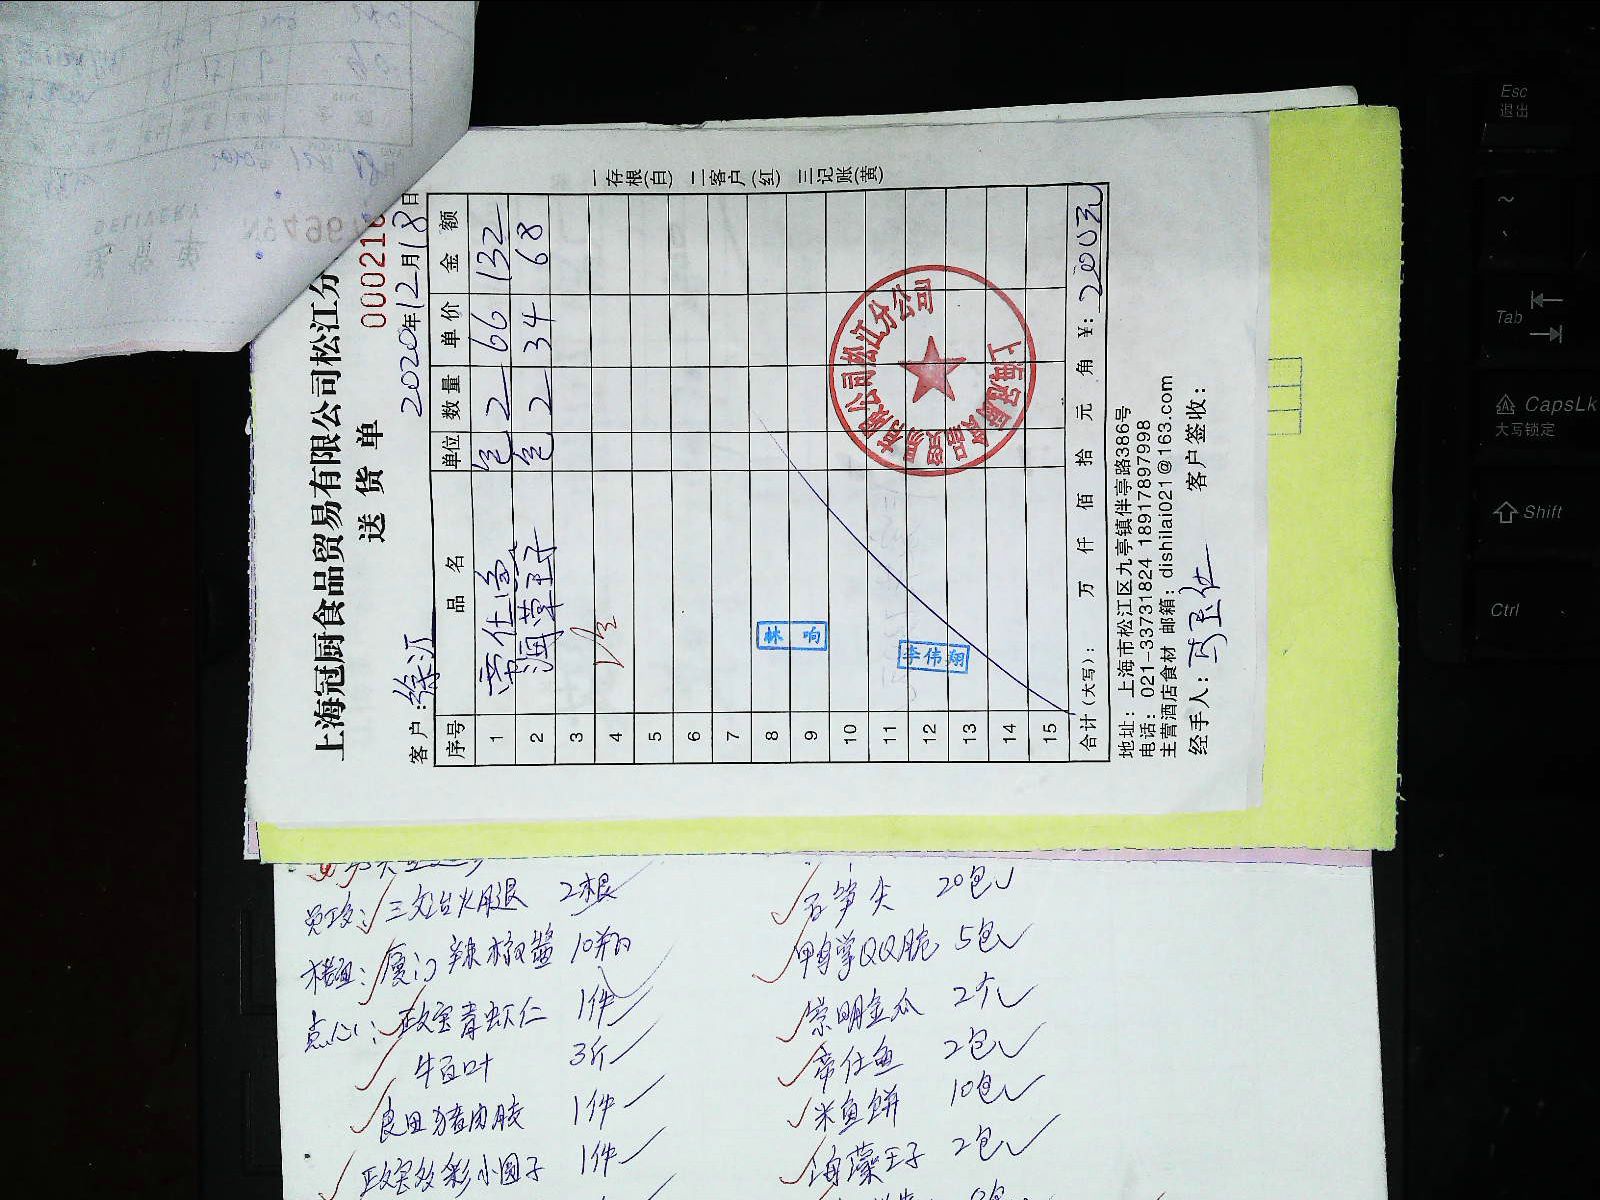 上海冠厨食品贸易有限公司松江分
送货单
000216
客户：徐汇 2020年12月18日
序号 品名 单位 数量 单价 金额
1 帝仕鱼 包 2 66 132
2 海藻王子 包 2 34 68
3
4
5
6
7
8
9
10
11
12
13
14
15
林响
李伟翔
上海冠厨食品贸易有限公司松江分公司
合计(大写)： 万 仟 佰 拾 元 角 ¥：200元
一存根(白) 二客户(红) 三记账(黄)
地址：上海市松江区九亭镇伴亭路386号
电话：021-33731824 18917897998
主营酒店食材 邮箱：dishilai021@163.com
经手人： 客户签收：
DELIVERY
三文治火腿 2根
厦门辣椒酱 10瓶
点心：政宝青虾仁 1件
牛百叶 3斤
良田猪肉胶 1件
政宝炫彩小圆子 1件
石笋尖 20包
鸭掌QQ脆 5包
崇明金瓜 2个
帝仕鱼 2包
米鱼饼 10包
海藻王子 2包
Esc
退出
~
Tab
CapsLk
大写锁定
Shift
Ctrl